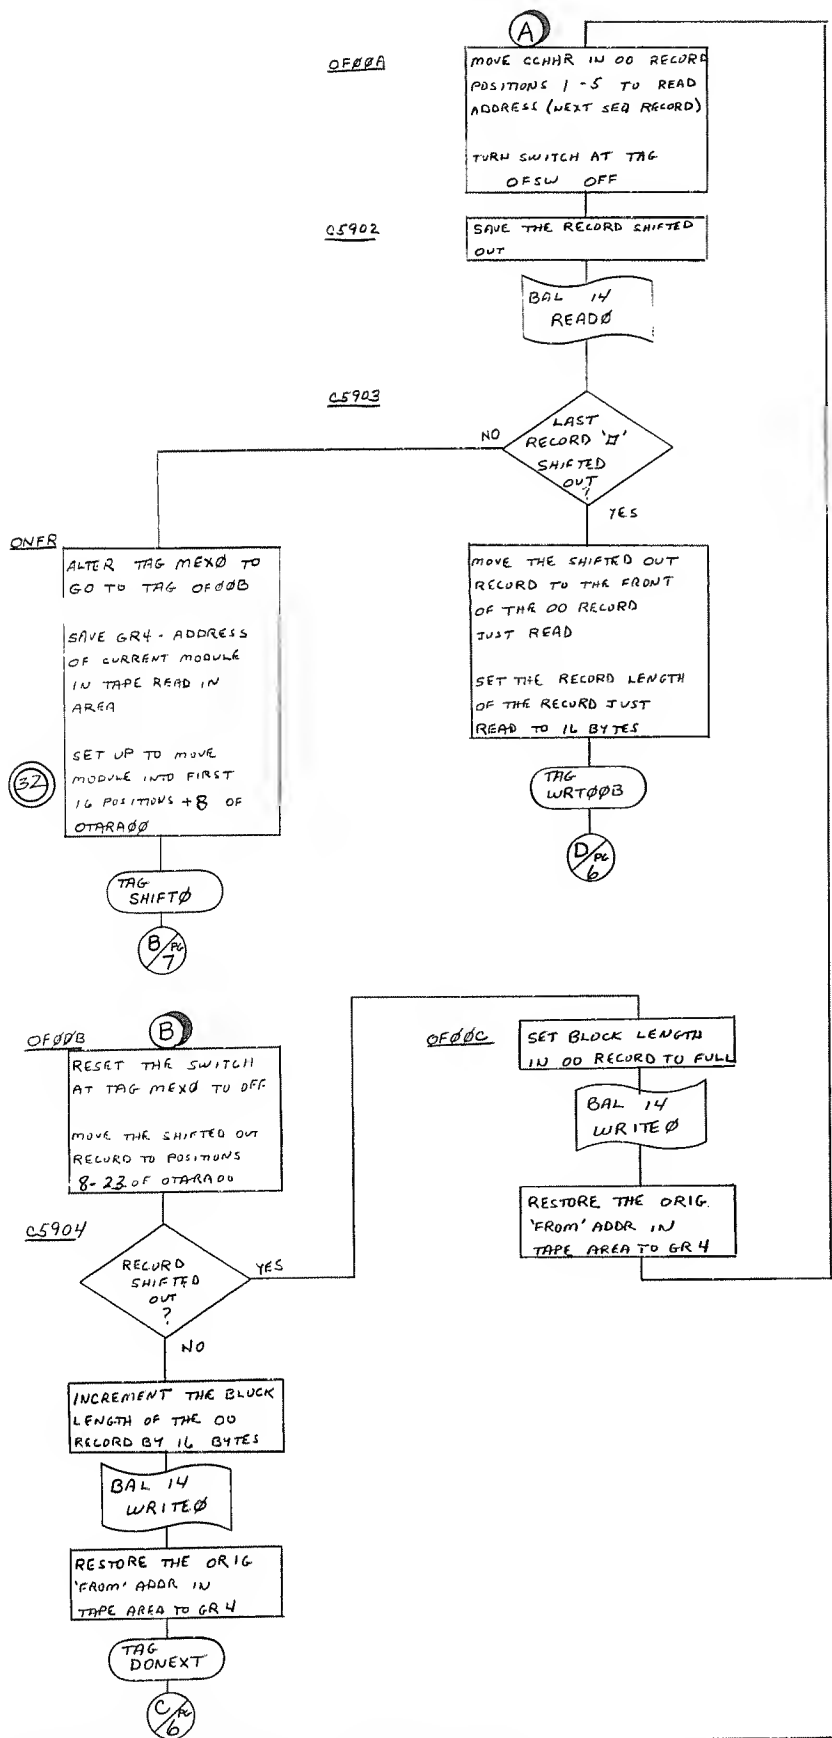 A
OFØØA
MOVE CCHHR IN 00 RECORD
POSITIONS 1-5 TO READ
ADDRESS (NEXT SEQ RECORD)
TURN SWITCH AT TAG
OFSW OFF
C5902
SAVE THE RECORD SHIFTED
OUT
BAL 14
READØ
C5903
LAST
RECORD '¤'
SHIFTED
OUT
?
NO
YES
ONFR
ALTER TAG MEXØ TO
GO TO TAG OFØØB
SAVE GR4 - ADDRESS
OF CURRENT MODULE
IN TAPE READ IN
AREA
SET UP TO MOVE
MODULE INTO FIRST
16 POSITIONS +8 OF
OTARAØØ
32
TAG
SHIFTØ
B/PG
7
MOVE THE SHIFTED OUT
RECORD TO THE FRONT
OF THE 00 RECORD
JUST READ
SET THE RECORD LENGTH
OF THE RECORD JUST
READ TO 16 BYTES
TAG
WRTØØB
D/PG
6
OFØØB
B
RESET THE SWITCH
AT TAG MEXØ TO OFF
MOVE THE SHIFTED OUT
RECORD TO POSITIONS
8-23 OF OTARA00
C5904
RECORD
SHIFTED
OUT
?
YES
NO
INCREMENT THE BLOCK
LENGTH OF THE 00
RECORD BY 16 BYTES
BAL 14
WRITEØ
RESTORE THE ORIG
'FROM' ADDR IN
TAPE AREA TO GR4
TAG
DONEXT
C/PG
6
OFØØC
SET BLOCK LENGTH
IN 00 RECORD TO FULL
BAL 14
WRITEØ
RESTORE THE ORIG.
'FROM' ADDR IN
TAPE AREA TO GR4